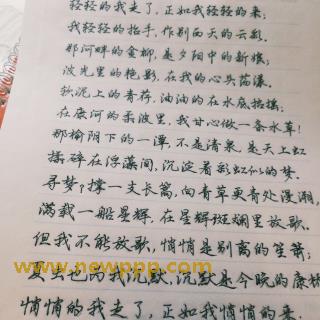 轻轻的我走了，正如我轻轻的来；
我轻轻的招手，作别西天的云彩。
那河畔的金柳，是夕阳中的新娘；
波光里的艳影，在我的心头荡漾。
软泥上的青荇，油油的在水底招摇；
在康河的柔波里，我甘心做一条水草！
那榆阴下的一潭，不是清泉，是天上虹
揉碎在浮藻间，沉淀着彩虹似的梦。
寻梦？撑一支长篙，向青草更青处漫溯，
满载一船星辉，在星辉斑斓里放歌。
但我不能放歌，悄悄是别离的笙箫；
夏虫也为我沉默，沉默是今晚的康桥
悄悄的我走了，正如我悄悄的来；
www.newppp.com